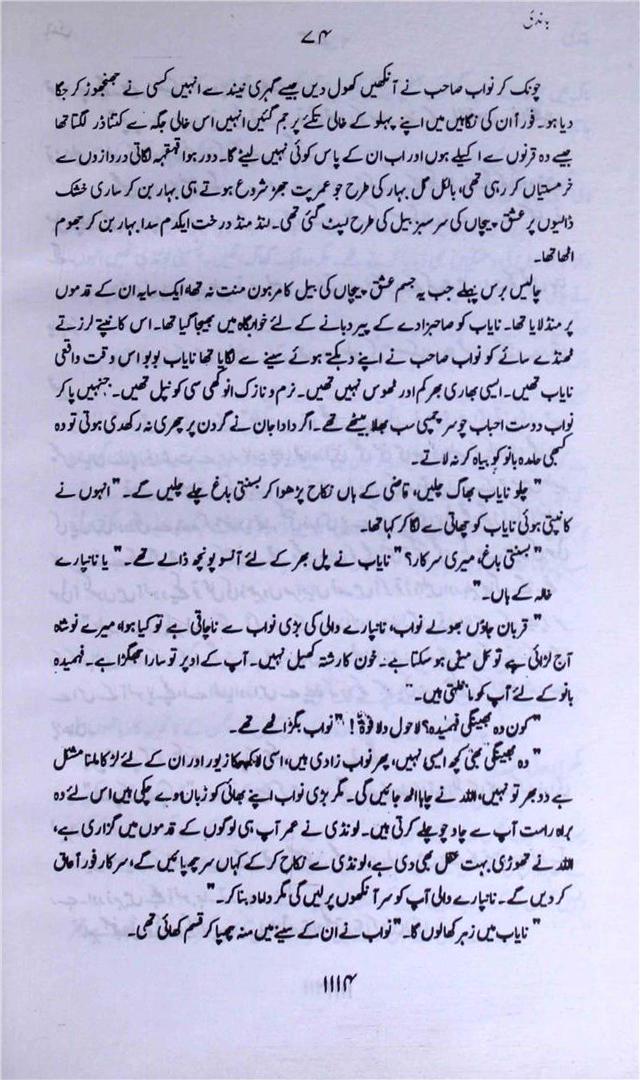 باندی
۷۴
چونک کر نواب صاحب نے آنکھیں کھول دیں جیسے گہری نیند سے انہیں کسی نے جھنجھوڑ کر جگا
دیا ہو۔ فوراً ان کی نگاہیں اپنے پہلو کے خالی تکئے پر جم گئیں انہیں اس خالی جگہ سے کتنا ڈر لگتا تھا
جیسے وہ قرنوں سے اکیلے ہوں اور اب ان کے پاس کوئی نہیں لیٹے گا۔ دور ہوا قہقہہ لگاتی دروازوں سے
خرمستیاں کر رہی تھی، بالکل گل بہار کی طرح جو عمر پت جھڑ شروع ہوتے ہی بہار بن کر ساری خشک
ڈالیوں پر عشق پیچاں کی سرسبز بیل کی طرح لپٹ گئی تھی۔ لنڈ منڈ درخت ایکدم سدا بہار بن کر جھوم
اٹھا تھا۔
چالیس برس پہلے جب یہ جسم عشق پیچاں کی بیل کا مرہون منت نہ تھا، ایک سایہ ان کے قدموں
پر منڈلایا تھا۔ نایاب کو صاحبزادے کے پیر دبانے کے لئے خوابگاہ میں بھیجا گیا تھا۔ اس کانپتے لرزتے
ٹھنڈے سائے کو نواب صاحب نے اپنے دہکتے ہوئے سینے سے لگایا تھا نایاب بوبو اس وقت واقعی
نایاب تھیں۔ ایسی بھاری بھر کم اور ٹھوس نہیں تھیں۔ نرم و نازک انوکھی سی کونپل تھیں۔ جنہیں پا کر
نواب دوست احباب چوسر پچیسی سب بھلا بیٹھے تھے۔ اگر دادا جان نے گردن پر چھری نہ رکھدی ہوتی تو وہ
کبھی حامدہ بانو کو بیاہ کر نہ لاتے۔
" چلو نایاب بھاگ چلیں، قاضی کے ہاں نکاح پڑھوا کر بسنتی باغ چلے چلیں گے۔" انہوں نے
کانپتی ہوئی نایاب کو چھاتی سے لگا کر کہا تھا۔
" بسنتی باغ، میری سرکار؟" نایاب نے پل بھر کے لئے آنسو پونچھ ڈالے تھے۔ " یا نانپارے
خالہ کے ہاں۔"
" قربان جاؤں بھولے نواب، نانپارے والی کی بڑی نواب سے ناچاتی ہے تو کیا ہوا، میرے نوشاہ
آج لڑائی ہے تو کل صفی ہو سکتا ہے۔ خون کا رشتہ کھیل نہیں۔ آپ کے اوپر تو سارا جھگڑا ہے۔ فہمیدہ
بانو کے لئے آپ کو مانگتی ہیں۔"
" کون وہ بھینگی فہمیدہ؟ لاحول ولا قوۃ!" نواب بگڑ اٹھے تھے۔
" وہ بھینگی بھی کچھ ایسی نہیں، پھر نواب زادی ہیں، اسی لاکھ کا زیور اور ان کے لئے لڑکا ملنا مشکل
ہے دوبھر تو نہیں، اللہ نے چاہا اٹھ جائیں گی۔ مگر بڑی نواب اپنے بھائی کو زبان دے چکی ہیں اس لئے وہ
براہ راست آپ سے چاؤ چوچلے کرتی ہیں۔ لونڈی نے عمر آپ ہی لوگوں کے قدموں میں گزاری ہے،
اللہ نے تھوڑی بہت عقل بھی دی ہے، لونڈی سے نکاح کر کے کہاں سر چھپائیں گے، سرکار فوراً عاق
کر دیں گے۔ نانپارے والی آپ کو سر آنکھوں پر لیں گی مگر داماد بنا کر۔"
" نایاب میں زہر کھالوں گا۔" نواب نے ان کے سینے میں منہ چھپا کر قسم کھائی تھی۔
۱۱۱۴